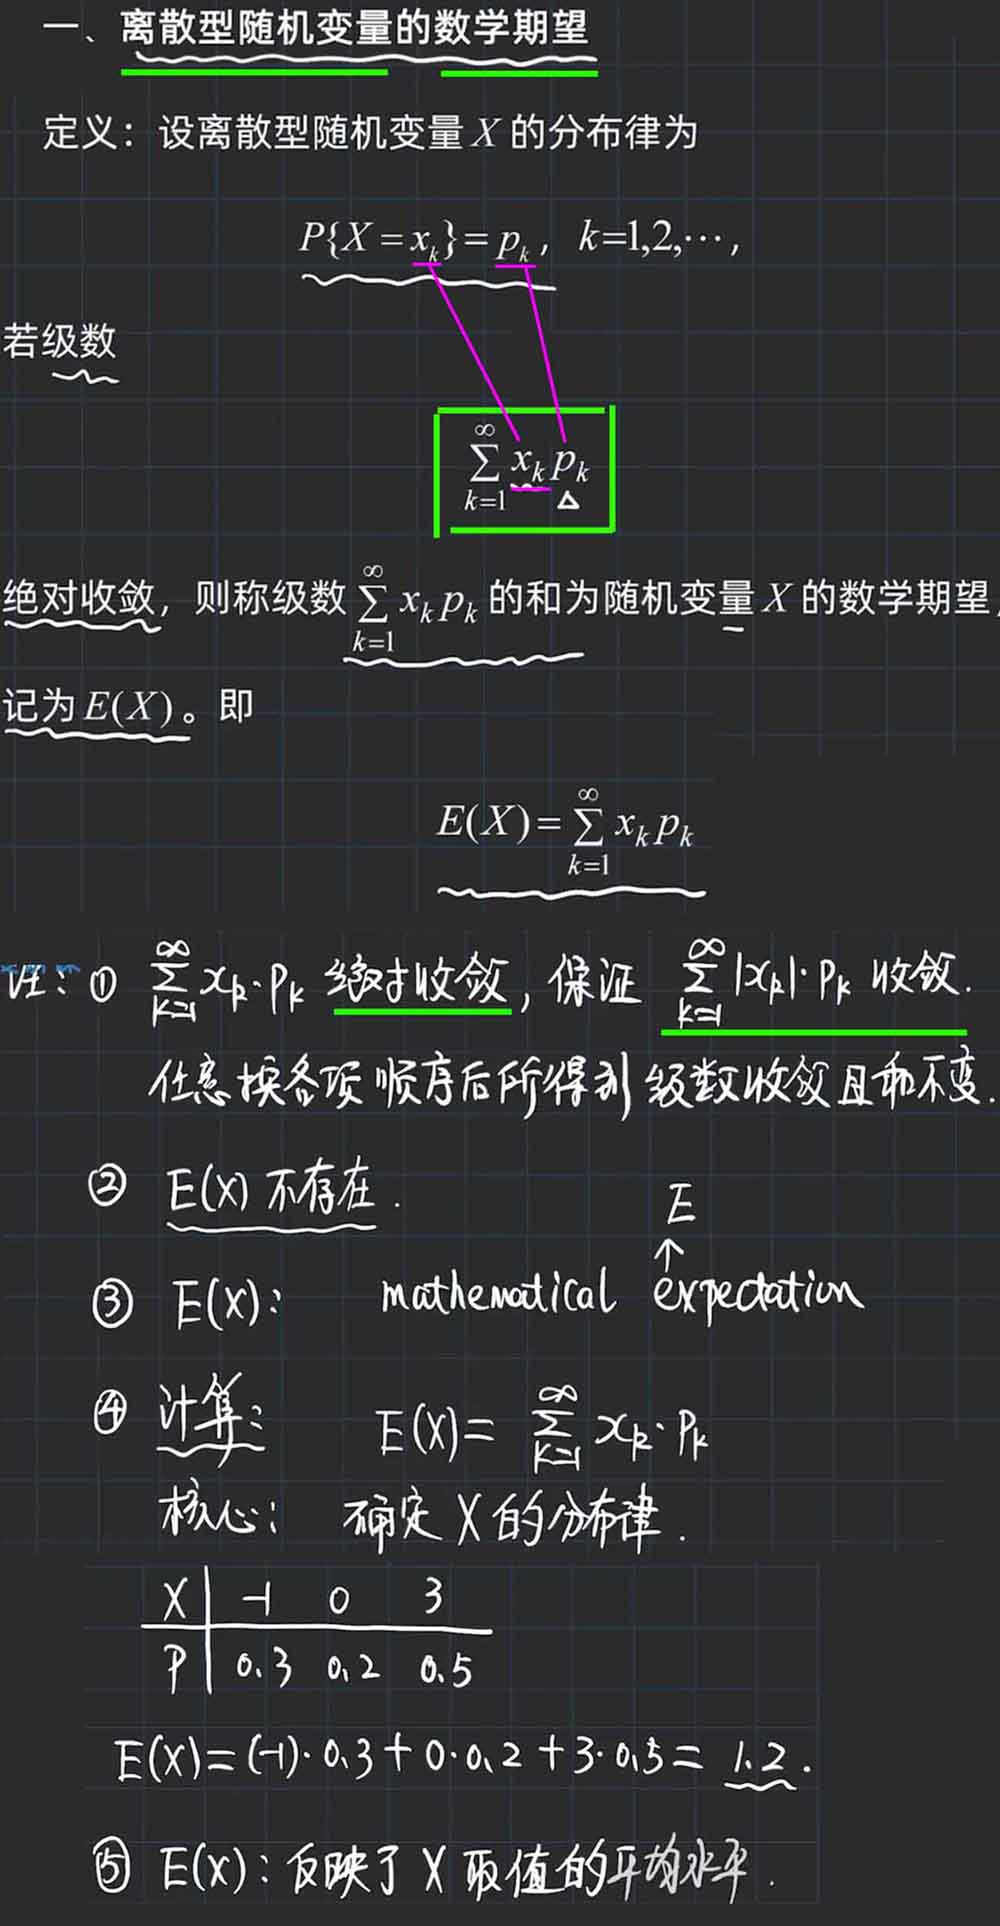 一、离散型随机变量的数学期望
定义：设离散型随机变量 X 的分布律为
P{X = x_k} = p_k, k=1,2,⋯,
若级数
∑_{k=1}^{∞} x_k p_k
绝对收敛，则称级数 ∑_{k=1}^{∞} x_k p_k 的和为随机变量 X 的数学期望,
记为 E(X)。即
E(X) = ∑_{k=1}^{∞} x_k p_k
注：① ∑_{k=1}^{∞} x_k·p_k 绝对收敛，保证 ∑_{k=1}^{∞} |x_k|·p_k 收敛.
任意换各项顺序后所得到级数收敛且和不变.
② E(X) 不存在.
E
↑
③ E(X): mathematical expectation
④ 计算: E(X) = ∑_{k=1}^{∞} x_k·p_k
核心: 确定 X 的分布律.
X -1 0 3
P 0.3 0.2 0.5
E(X)=(-1)·0.3+0·0.2+3·0.5=1.2.
⑤ E(X): 反映了 X 取值的平均水平.